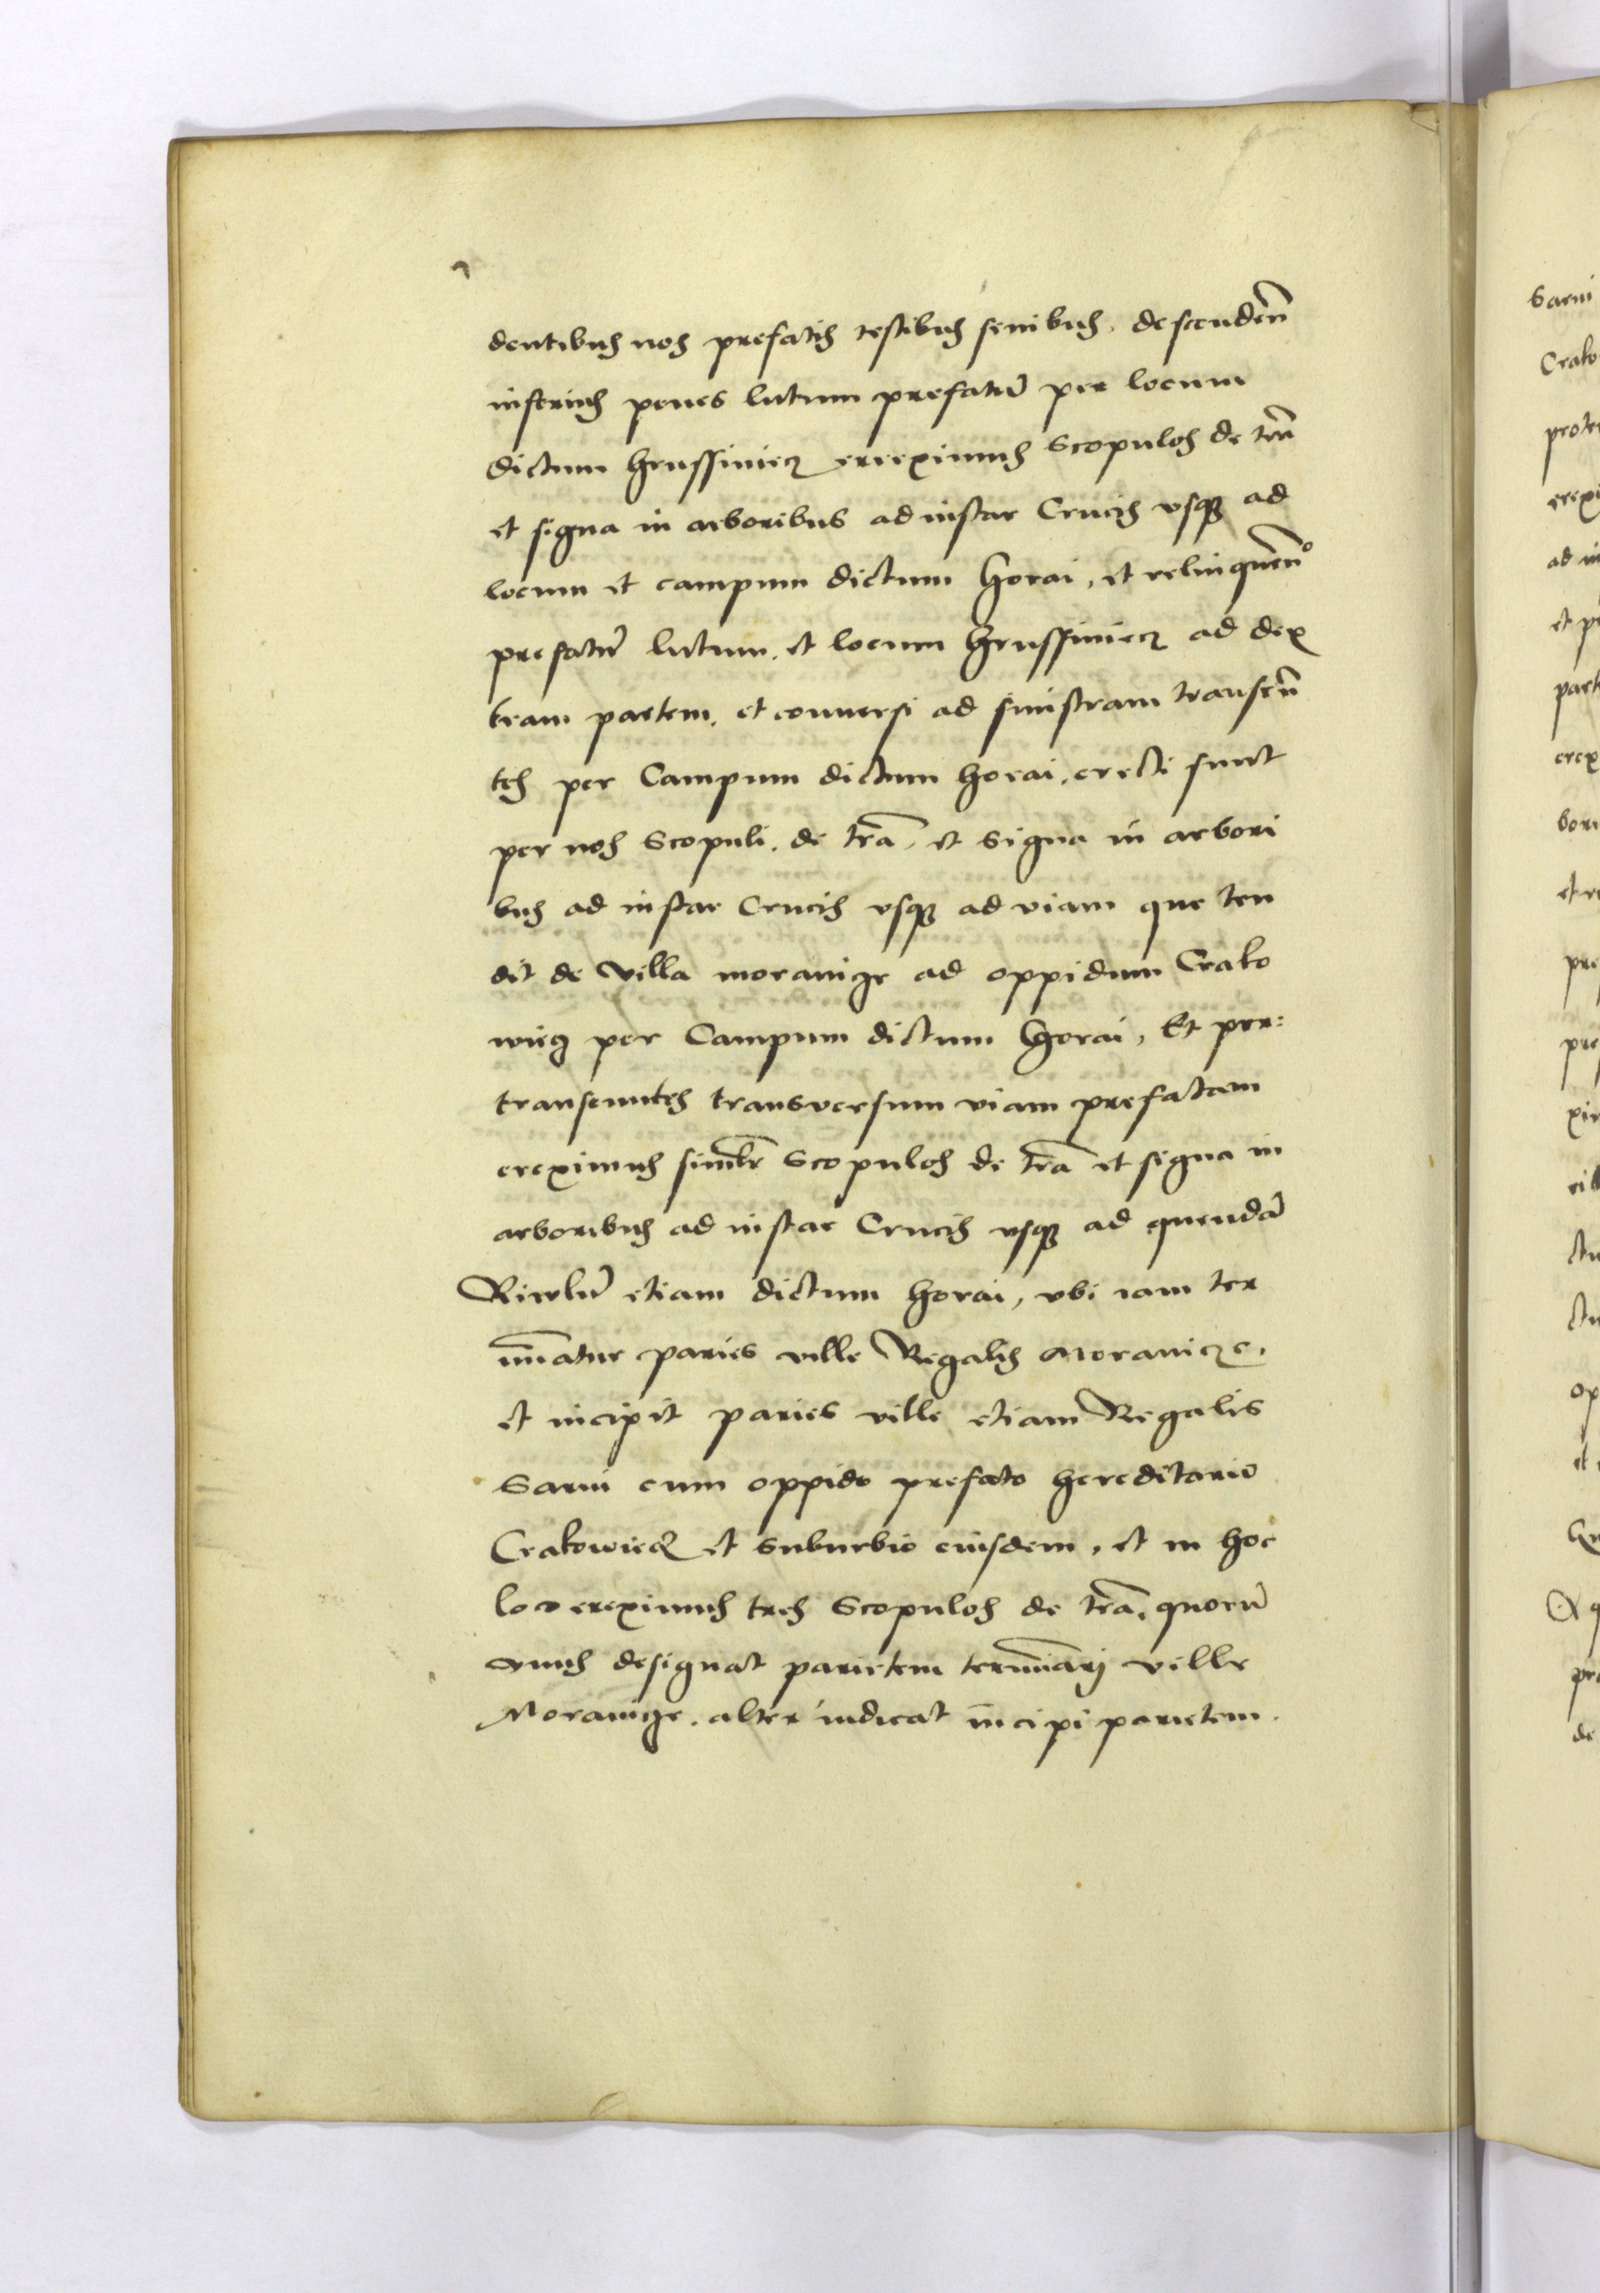 dentibus nos prefatis testibus senibus. descendeñ
inferius penes lutum prefatū per locum
dictum hrussiniecz erexximus Scopulos de trã
et signa in arboribus ad instar Crucis vsqꝫ ad
locum et campum dictum horai, et relinquenᵒ
prefatū lutum. et locum hrussiniecz ad dex
tram partem. et conuersi ad sinistram transeū
tes per Campum dictum horai. erecti sunt
per nos Scopuli. de trã, et signa in arbori
bus ad instar Crucis vsqꝫ ad viam que ten
dit de villa moranicze ad oppidum Crako
wiecz per Campum dictum horai, Et per:
transeuntes transversum viam prefatam
ereximus simlr̃ Scopulos de trã et signa in
arboribus ad instar Crucis vsqꝫ ad quendā
Riwlū etiam dictum horai, vbi iam ter
mīatur paries ville Regalis Moranicze.
et incipit paries ville etiam Regalis
Sarni cum oppido prefato hereditariū
Crakowiecz et suburbio eiusdem, et in hoc
loco ereximus tres Scopulos de trã. quorū
vnus designat parietem termīari ville
Moranicze. alter indicat incipi parietem.
Sarni
Crako